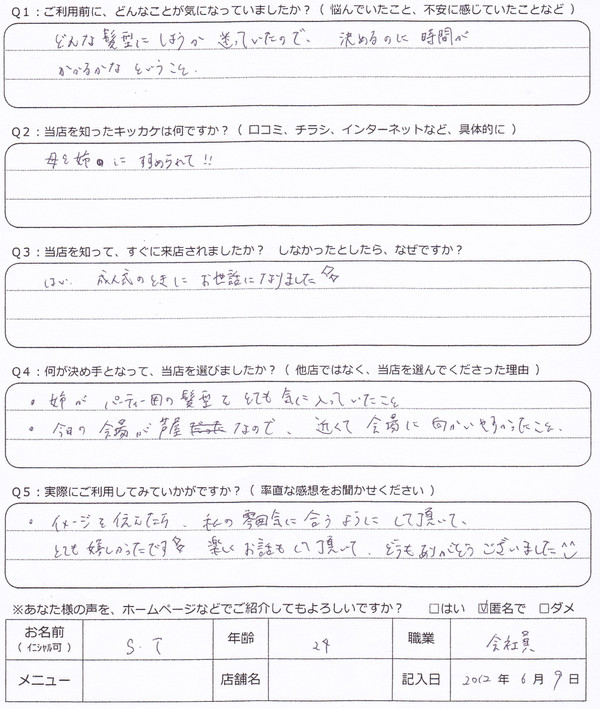 Q1：ご利用前に、どんなことが気になっていましたか？（ 悩んでいたこと、不安に感じていたことなど ）
どんな髪型にしようか 迷っていたので、 決めるのに 時間が
かかるかな ということ.
Q2：当店を知ったキッカケは何ですか？（ 口コミ、チラシ、インターネットなど、具体的に ）
母と姉 に すすめられて!!
Q3：当店を知って、すぐに来店されましたか？ しなかったとしたら、なぜですか？
はい. 成人式のときに お世話になりました
Q4：何が決め手となって、当店を選びましたか？（ 他店ではなく、当店を選んでくださった理由 ）
・姉が パーティー用の髪型を とても 気に入っていたこと
・今日の会場が芦屋 なので、 近くて 会場に 向かいやすかったこと.
Q5：実際にご利用してみていかがですか？（ 率直な感想をお聞かせください ）
・イメージを伝えたら、私の雰囲気に合うように して頂いて、
とても 嬉しかったです 楽しくお話もして頂いて、どうもありがとうございました^^
※あなた様の声を、ホームページなどでご紹介してもよろしいですか？ □はい ☑匿名で □ダメ
お名前 （ｲﾆｼｬﾙ可） S.T 年齢 24 職業 会社員
メニュー 店舗名 記入日 2012 年 6 月 9 日